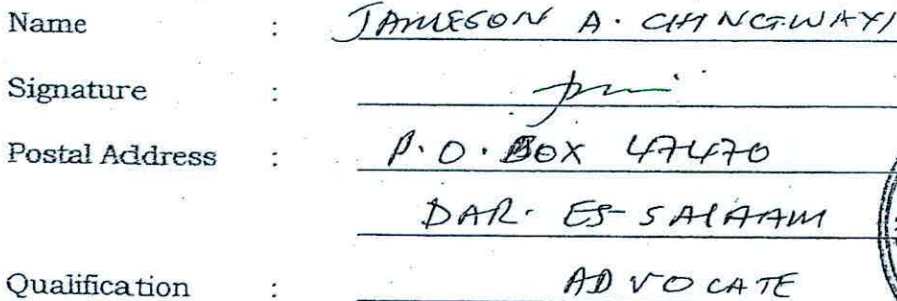 Name : JAMESON A. CHINGWAYI
Signature :
Postal Address : P.O. BOX 47470
DAR. ES-SALAAM
Qualification : ADVOCATE